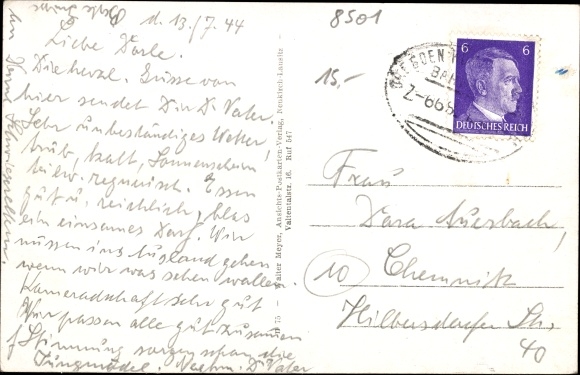 d. 13./7. 44
Liebe Dorle.
Die herzl. Grüsse von
hier sendet Dir D. Vater.
Sehr unbeständiges Wetter,
trüb, kalt, Sonnenschein
u. regnerisch. Essen
gut u. reichlich, blos
ein einsames Dorf. Wir
müssen ins Ausland gehen
wenn wir was sehen wollen.
Kameradschaft sehr gut
Wir passen alle gut zusammen
f Stimmung sorgen schon die
Jungmädel. Nochm. D. Vater
8501
15,-
6 6
DEUTSCHES REICH
Walter Meyer, Ansichts-Postkarten-Verlag,
Ruf 547
Frau
Dora Auerbach,
10 Chemnitz
Hilbersdorfer Str.
40